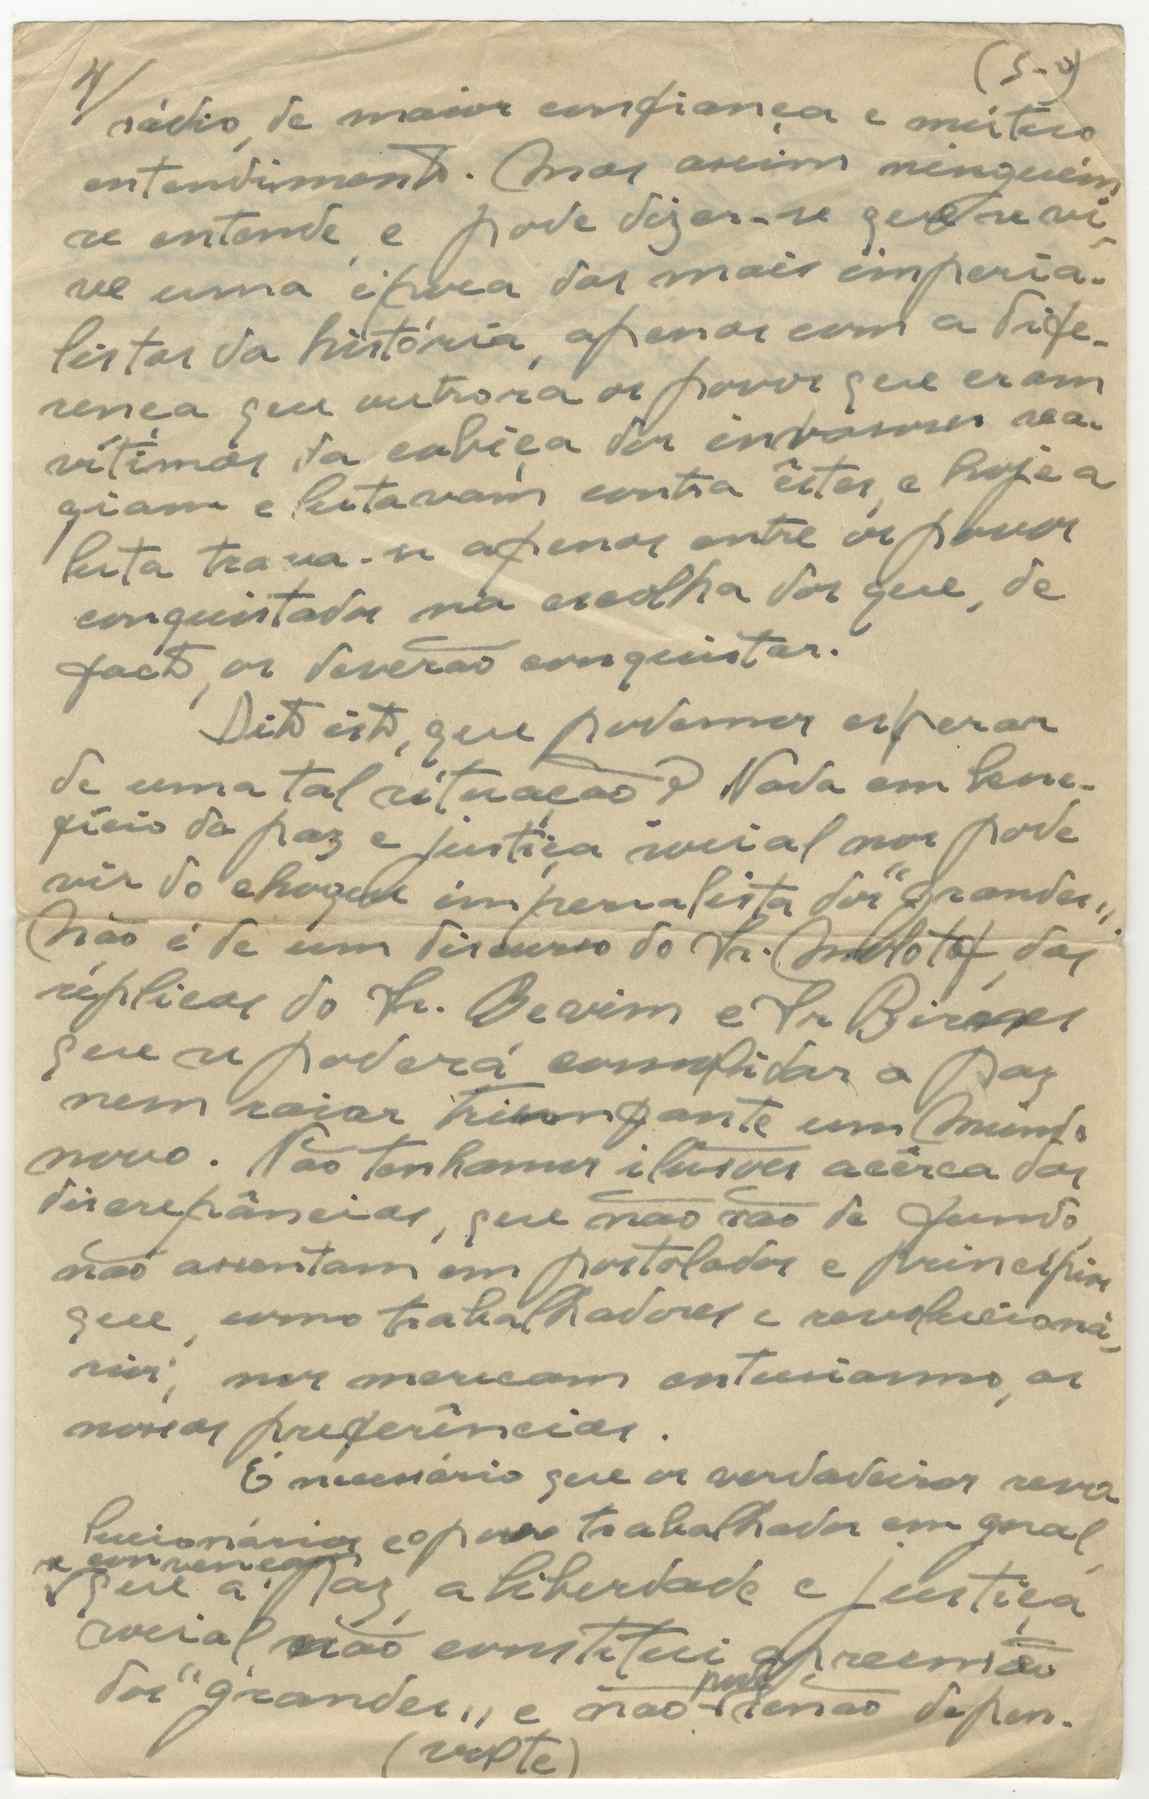 4/ (5-o)
rádio, de maior confiança e mútuo
entendimento. Mas assim ninguém
se entende, e pode dizer-se que se vi-
ve uma época das mais imperia-
listas da história, apenas com a dife-
rença que outrora os povos que eram
vítimas da cobiça dos invasores rea-
giam e lutavam contra êstes, e hoje a
luta trava-se apenas entre os povos
conquistados na escolha dos que, de
facto, os deverão conquistar.
Dito isto, que podemos esperar
de uma tal situação? Nada em bene-
fício da paz e justiça social nos pode
vir do choque imperialista dos "grandes".
Não é de um discurso do Sr. Molotof, das
réplicas do Sr. Bevim e Sr Birnes
que se poderá consolidar a paz
nem raiar triunfante um Mundo
novo. Não tenhamos ilusões acêrca das
discrepâncias, que não são de fundo,
não assentam em postolados e princípios
que, como trabalhadores e revolucioná-
rios, nos mereçam entusiasmo, as
nossas preferências.
É necessário que os verdadeiros revo
lucionários e o povo trabalhador em geral
se convençam
que a paz, a liberdade e justiça
social não constitui apreensão
dos "grandes" e não pode senão depen-
(volte)